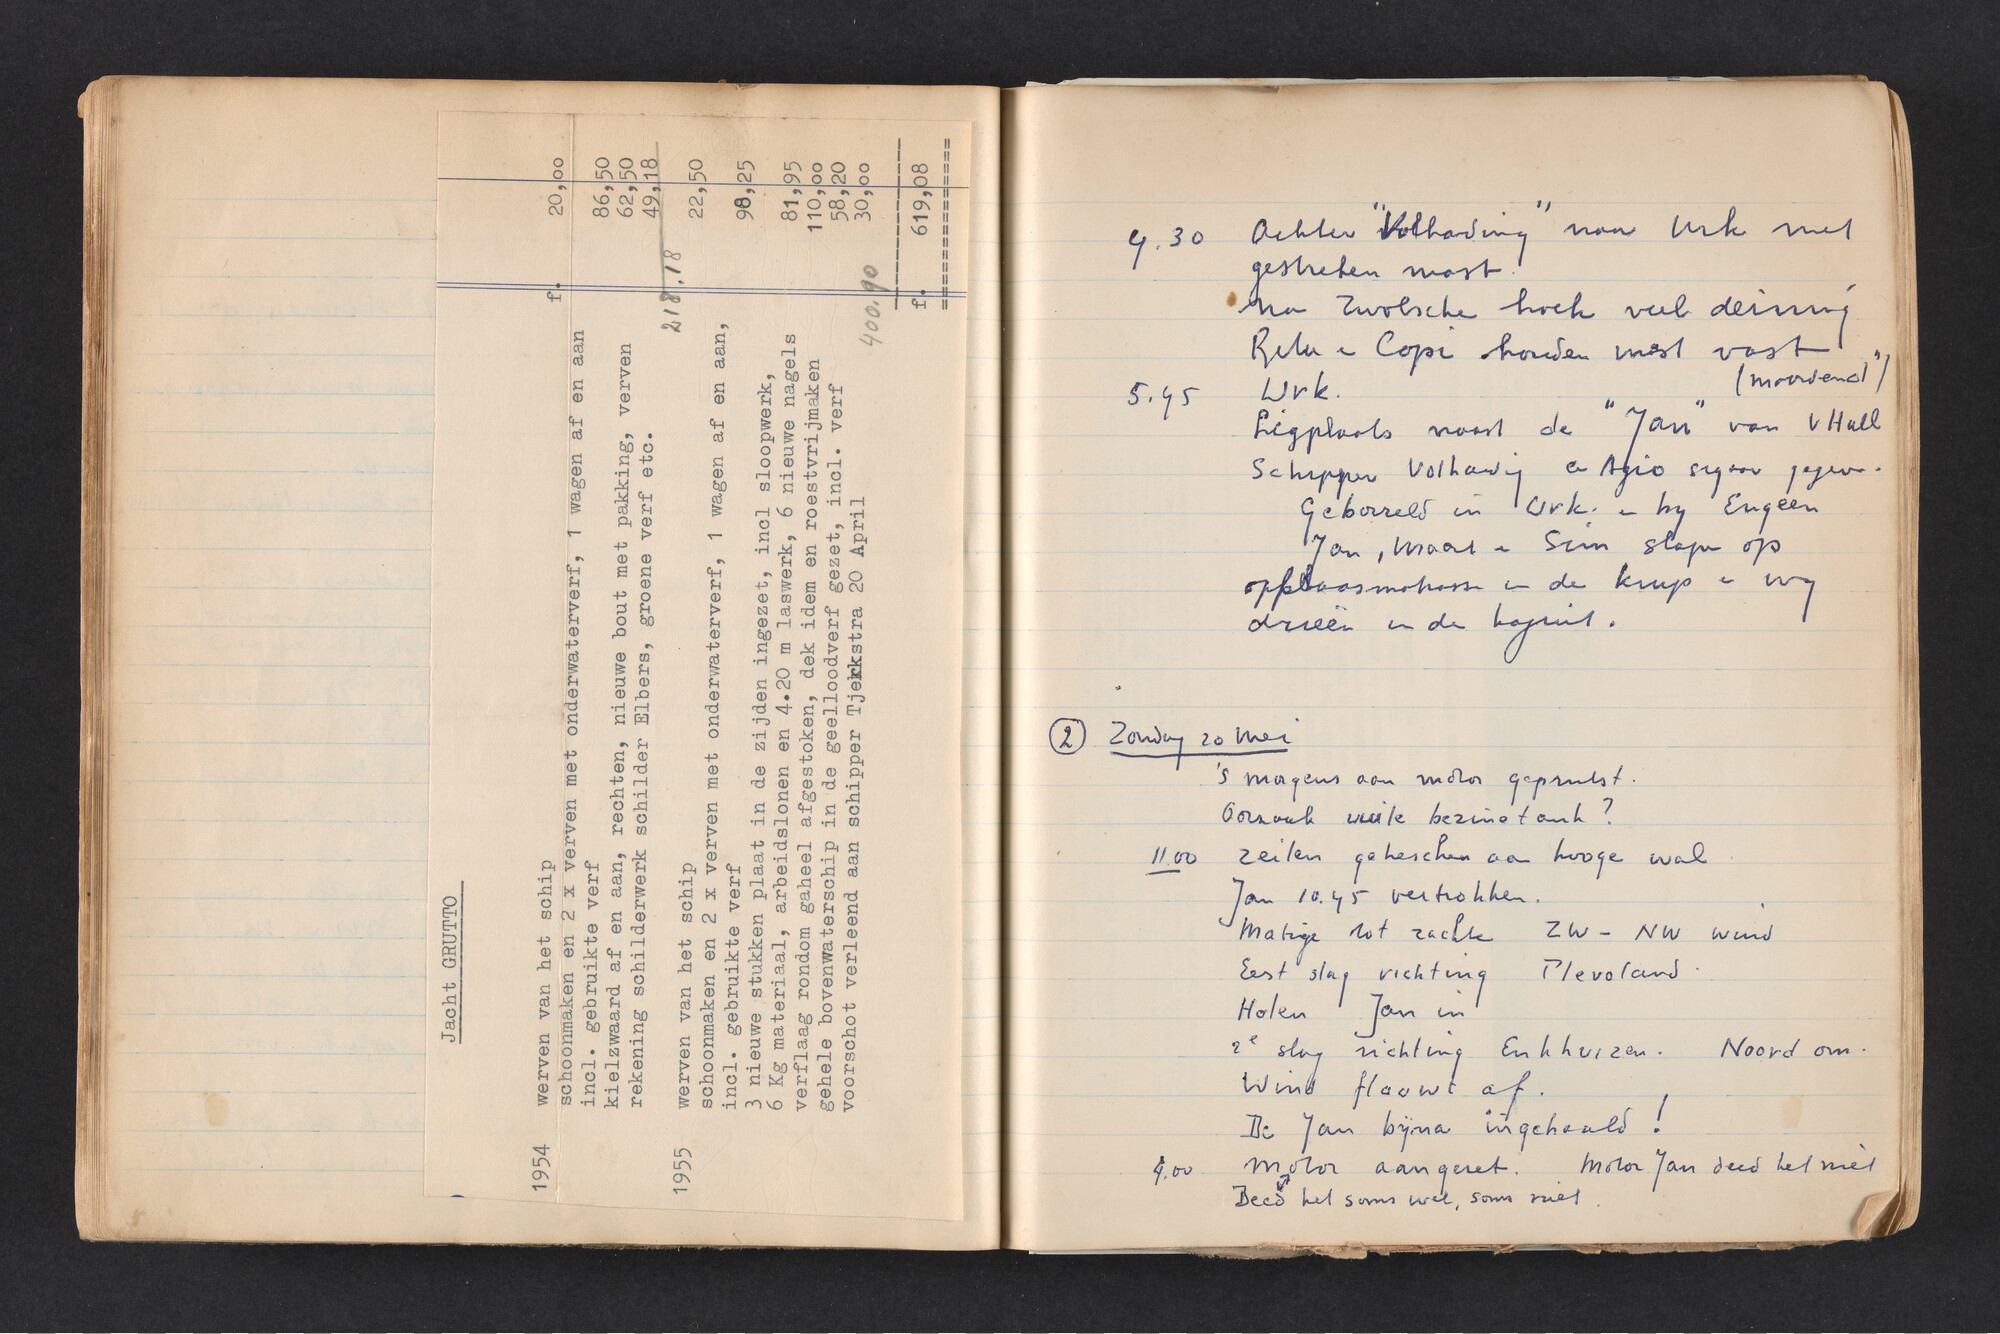 Jacht GRUTTO
1954 werven van het schip f. 20,00
schoonmaken en 2 x verven met onderwaterverf, 1 wagen af en aan
incl. gebruikte verf 86,50
kielzwaard af en aan, rechten, nieuwe bout met pakking, verven 62,50
rekening schilderwerk schilder Elbers, groene verf etc. 49,18
218.18
1955 werven van het schip 22,50
schoonmaken en 2 x verven met onderwaterverf, 1 wagen af en aan,
incl. gebruikte verf 98,25
3 nieuwe stukken plaat in de zijden ingezet, incl sloopwerk,
6 Kg materiaal, arbeidslonen en 4.20 m laswerk, 6 nieuwe nagels 81,95
verflaag rondom gaheel afgestoken, dek idem en roestvrijmaken 110,00
gehele bovenwaterschip in de geelloodverf gezet, incl. verf 58,20
voorschot verleend aan schipper Tjerkstra 20 April 30,00
400.90
f. 619,08
4.30 Achter "Volharding" naar Urk met
gestreken mast.
na Zwolsche hoek veel deining
Copi houden mast vast
(moordend")
5.45 Urk.
Ligplaats naast de "Jan" van v Hall
Schipper Volharding en Agio sigaar gegeven.
Geborreld in Urk. en by Eugeen
Jan, Maart en Sim slapen op
opblaasmatrassen in de kuip en wy
drieën in de kajuit.
2 Zondag 20 mei
's morgens aan motor geprutst.
Oorzaak vuile bezinetank?
11.00 Zeilen geheschen aan hooge wal
Jan 10.45 vertrokken.
Matige tot zachte ZW - NW wind
Eerst slag richting Flevoland.
Halen Jan in
2e slag richting Enkhuizen. Noord om.
Wind flauwt af.
De Jan bijna ingehaald!
4.00 Motor aangezet. Motor Jan deed het niet
Deed het soms wel, soms niet.